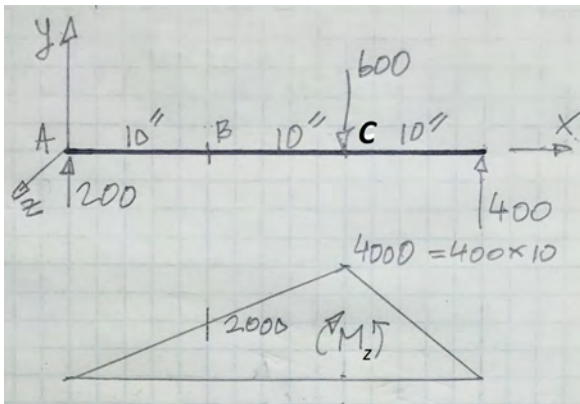 y
600
A 10" B 10" C 10" X
z 200
400
4000 = 400 × 10
2000 (Mz)